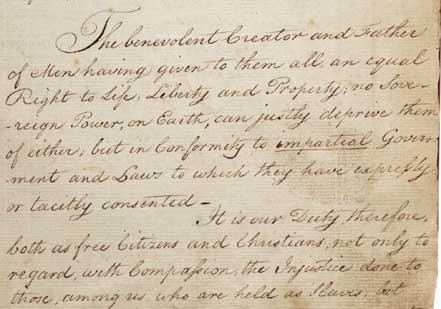 The benevolent Creator and Father
of Men having given to them all, an equal
Right to Life, Liberty and Property; no Sove-
-reign Power, on Earth, can justly deprive them
of either; but in Conformity to impartial Govern-
ment and Laws to which they have expressly
or tacitly consented —
It is our Duty, therefore,
both as free Citizens and Christians, not only to
regard, with Compassion, the Injustice done to
those, among us, who are held as Slaves, but